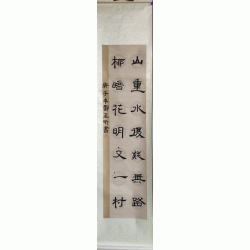 山重水複疑無路
柳暗花明又一村
庚子年書